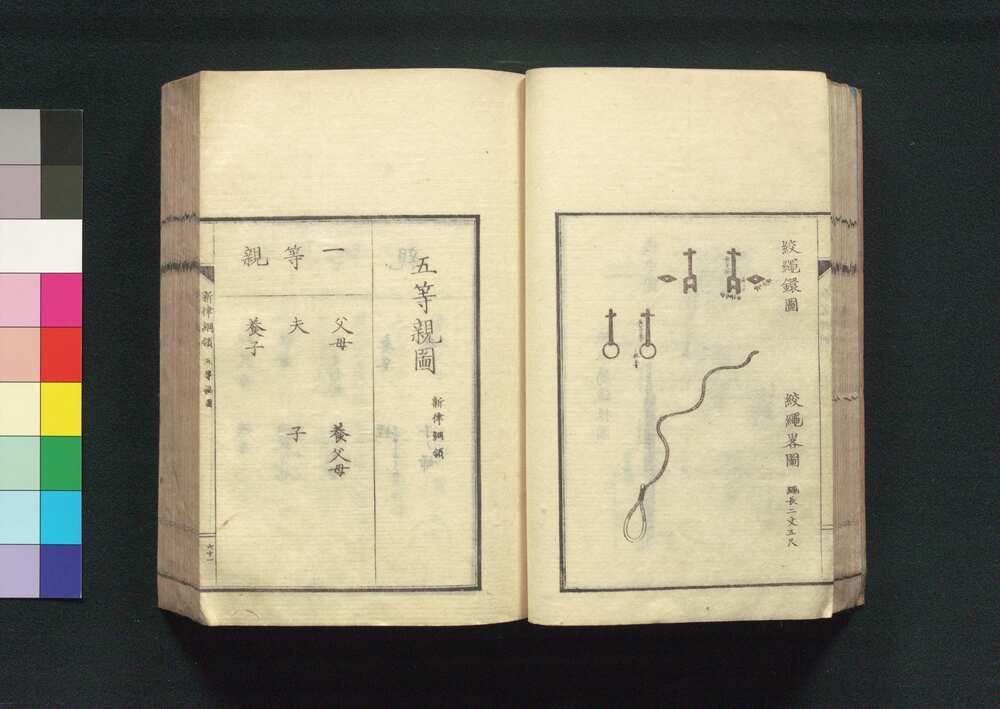 絞繩鐶圖
絞繩畧圖
繩長二丈五尺
五等親圖
新律綱領
一等親
父母
養父母
夫
子
養子
新律綱領
五等親圖
六十一